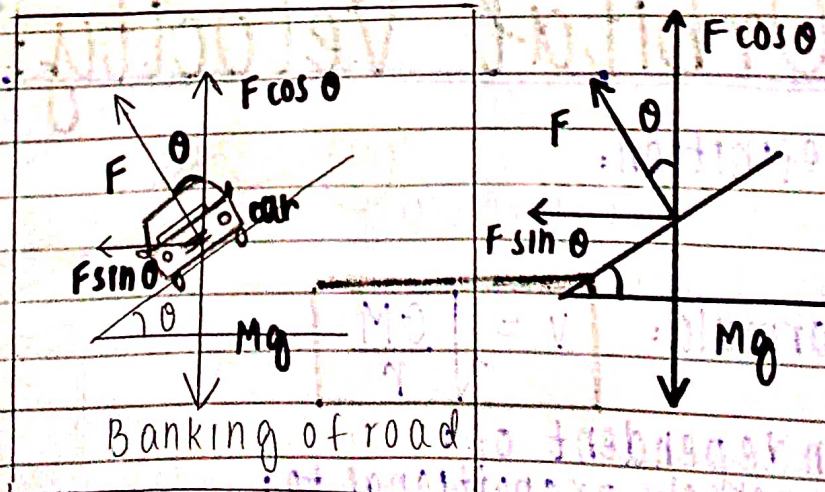 F cos θ
θ
F
car
F sin θ
θ
Mg
Banking of road
F cos θ
θ
F
F sin θ
Mg